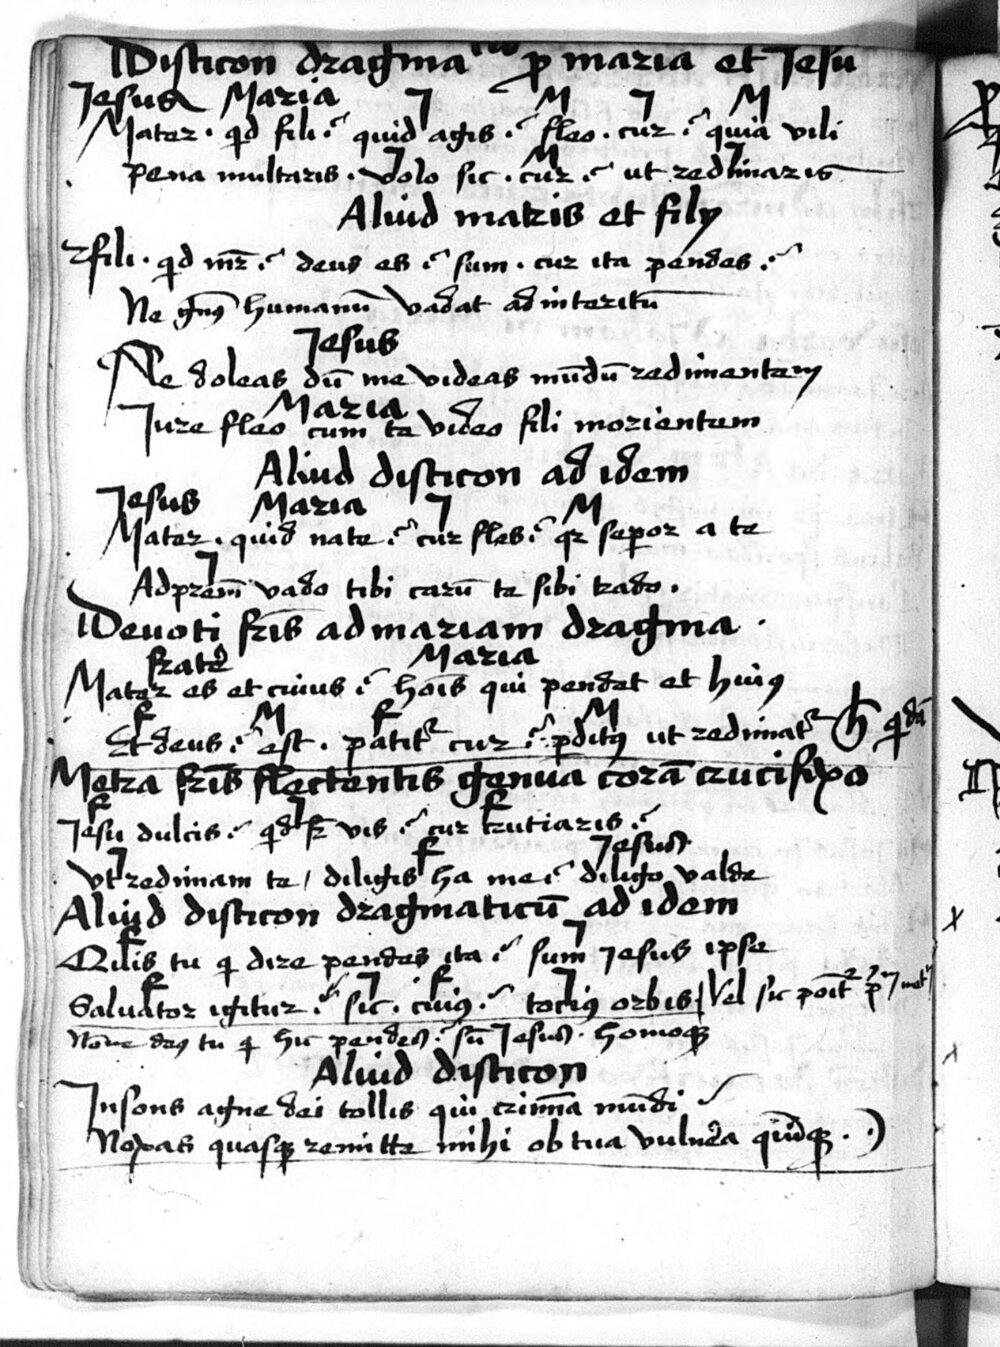 Disticon dragmaticū ꝓ maria et Jesu
Jesus Maria J M J M
Mater · qd fili ? quid agis ? fleo · cur ? quia vili
J M J
pena multaris · volo sic · cur ? ut redimaris
Aliud matris et filij
fili · qd mr̄ ? deus es ? sum · cur ita pendes ?
Ne gnꝰ humanū vadat ad interitū
Jesus
Ne doleas dū me videas mūdū redimentem
Maria
Jure fleo cum te video fili morientem
Aliud disticon ad idem
Jesus Maria J M
Mater · quid nate ? cur fles ? qr sepor a te
J
Ad prēm vado tibi carū te sibi trado ·
Devoti fr̄is ad mariam dragma ·
frater Maria
Mater es et cuius ? hoīs qui pendet et huiꝰ
f M f M
Et deus ? est · patitr cur ? ꝑditꝰ ut redimatr
Metra fr̄is flectentis genua corā crucifixo
f J f
Jesu dulcis ? qd fr̄ vis ? cur crutiaris ?
J f Jesus
Vt redimam te / diligis ha me ? diligo valde
Aliud disticon dragmaticū ad idem
f J
Quis tu q dire pendes ita ? sum Jesus ipse
f J f J
Salvator igitur ? sic · cuiꝰ ? totiꝰ orbis / Vel sic
Nōne deꝰ tu q hic pendes ? sū Jesus · homoqꝫ
Aliud disticon
Insons agne dei tollis qui crimīa mūdi
Noxas quasqꝫ remitte mihi ob tua vulnera qūqꝫ · ·)